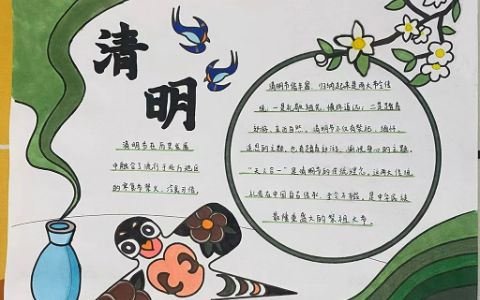 清明
清明节在历史发展
中融合了流行于北方地区
的寒食节禁火、冷食习俗。
清明节俗丰富,归纳起来是两大节令传
统:一是礼敬祖先,慎终追远;二是踏青
郊游、亲近自然。清明节不仅有祭扫、缅怀、
追思的主题,也有踏青郊游、愉悦身心的主题,
“天人合一”是清明节的传统理念。这两大传统
从古在中国自古传承,至今不辍,是中华民族
最隆重盛大的祭祖大节